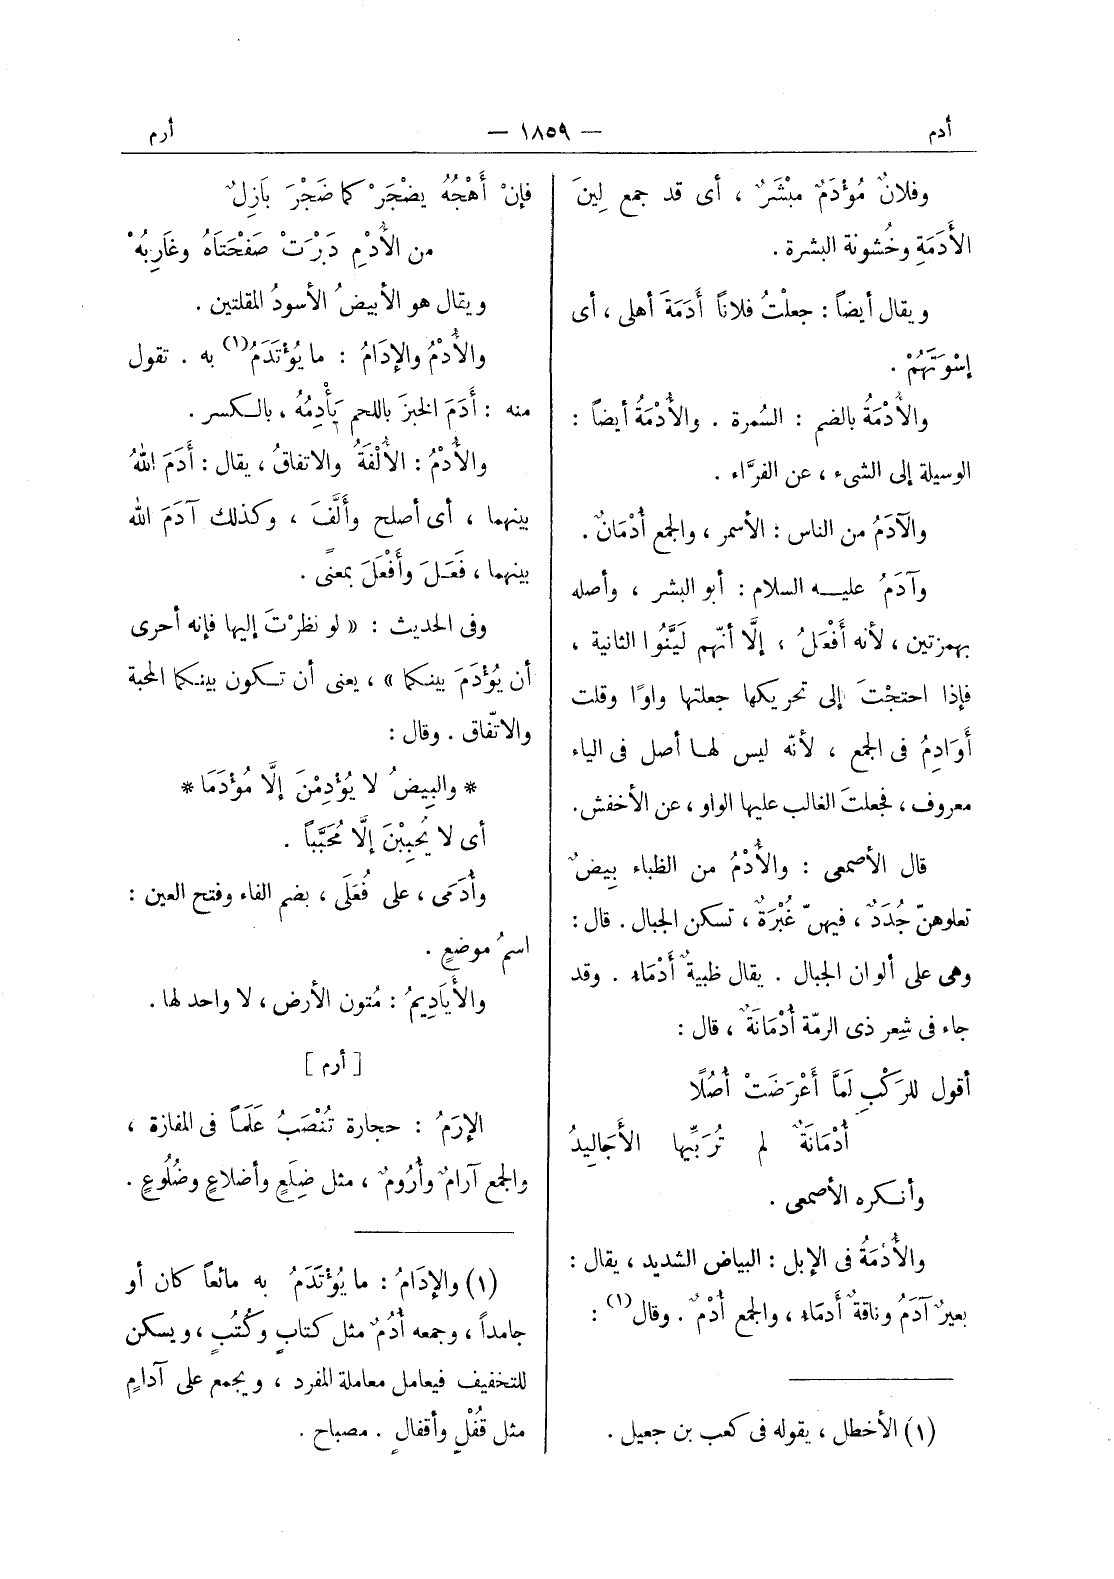 أدم — ١٨٥٩ — أرم
وفلانٌ مُؤْدَمٌ مبْشَرٌ ، أى قد جمع لِينَ
الأَدَمَةِ وخُشونة البشرة .
ويقال أيضاً : جعلْتُ فلاناً أَدَمَةَ أهلى ، أى
إسْوَتَهُمْ .
والأُدْمَةُ بالضم : السُمرة . والأُدْمَةُ أيضاً :
الوسيلة إلى الشىء ، عن الفرَّاء .
والآدَمُ من الناس : الأسمر ، والجمع أُدْمَانٌ .
وآدَمُ عليه السلام : أبو البشر ، وأصله
بهمزتين ، لأنه أَفْعَلُ ، إلَّا أنّهم لَيَّنُوا الثانية ،
فإذا احتجْتَ إلى تحريكها جعلتها واوًا وقلت
أَوَادِمُ فى الجمع ، لأنّه ليس لها أصل فى الياء
معروف ، فجعلتَ الغالب عليها الواو ، عن الأخفش .
قال الأصمعى : والأُدْمُ من الظباء بِيضٌ
تعلوهنّ جُدَدٌ ، فيهنّ غُبْرَةٌ ، تسكن الجبال . قال :
وهى على ألوان الجبال . يقال ظبيةٌ أَدْمَاء . وقد
جاء فى شِعر ذى الرمّة أُدْمَانَةٌ ، قال :
أقول للرَكْبِ لَمَّا أَعْرَضَتْ أُصُلًا
أُدْمَانَةٌ لم تُرَبِّيها الأَجَالِيدُ
وأنكره الأصمعى .
والأُدْمَةُ فى الإبل : البياض الشديد ، يقال :
بعيرٌ آدَمُ وناقةٌ أَدمَاء ، والجمع أُدْمٌ . وقال (١) :
(١) الأخطل ، يقوله فى كعب بن جعيل .
فإنْ أَهْجُهُ يضْجَرْ كما ضَجْرَ بَازِلٌ
من الأُدْمِ دَبْرَتْ صَفْحَتَاهُ وغَارِبُهْ
ويقال هو الأبيضُ الأسودُ المقلتين .
والأُدْمُ والإدَامُ : ما يُؤْتَدَمُ (١) به . تقول
منه : أَدَمَ الخبزَ باللحم يَأْدِمُهُ ، بالكسر .
والأُدْمُ : الأُلْفَةُ والاتفاقُ ، يقال : أَدَمَ اللهُ
بينهما ، أى أصلح وأَلَّفَ ، وكذلك آدَمَ الله
بينهما ، فَعَلَ وأَفْعَلَ بمعنًى .
وفى الحديث : « لو نظرْتَ إليها فإنه أحرى
أن يُؤْدَمَ بينكما » ، يعنى أن تكون بينكما المحبة
والاتّفاق . وقال :
* والبِيضُ لا يُؤْدِمْنَ إلَّا مُؤْدَمَا *
أى لا يُحْبِبْنَ إلَّا مُحَبَّباً .
وأُدَمَى ، على فُعَلَى ، بضم الفاء وفتح العين :
اسمُ موضعٍ .
والأَيَادِيمُ : مُتون الأرض ، لا واحد لها .
[ أرم ]
الإرَمُ : حجارة تُنْصَبُ عَلَماً فى المفازة ،
والجمع آرامٌ وأُرُومٌ ، مثل ضِلَعٍ وأضلاعٍ وضُلُوعٍ .
(١) والإدَامُ : ما يُؤْتَدَمُ به مائعاً كان أو
جامداً ، وجمعه أُدُمٌ مثل كتابٍ وكُتُبٍ ، ويسكن
للتخفيف فيعامل معاملة المفرد ، ويجمع على آدامٍ
مثل قُفْلٍ وأقفالٍ . مصباح .